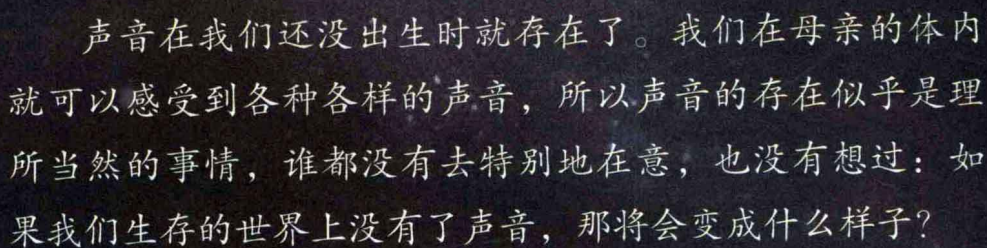 声音在我们还没出生时就存在了。我们在母亲的体内
就可以感受到各种各样的声音，所以声音的存在似乎是理
所当然的事情，谁都没有去特别地在意，也没有想过：如
果我们生存的世界上没有了声音，那将会变成什么样子？